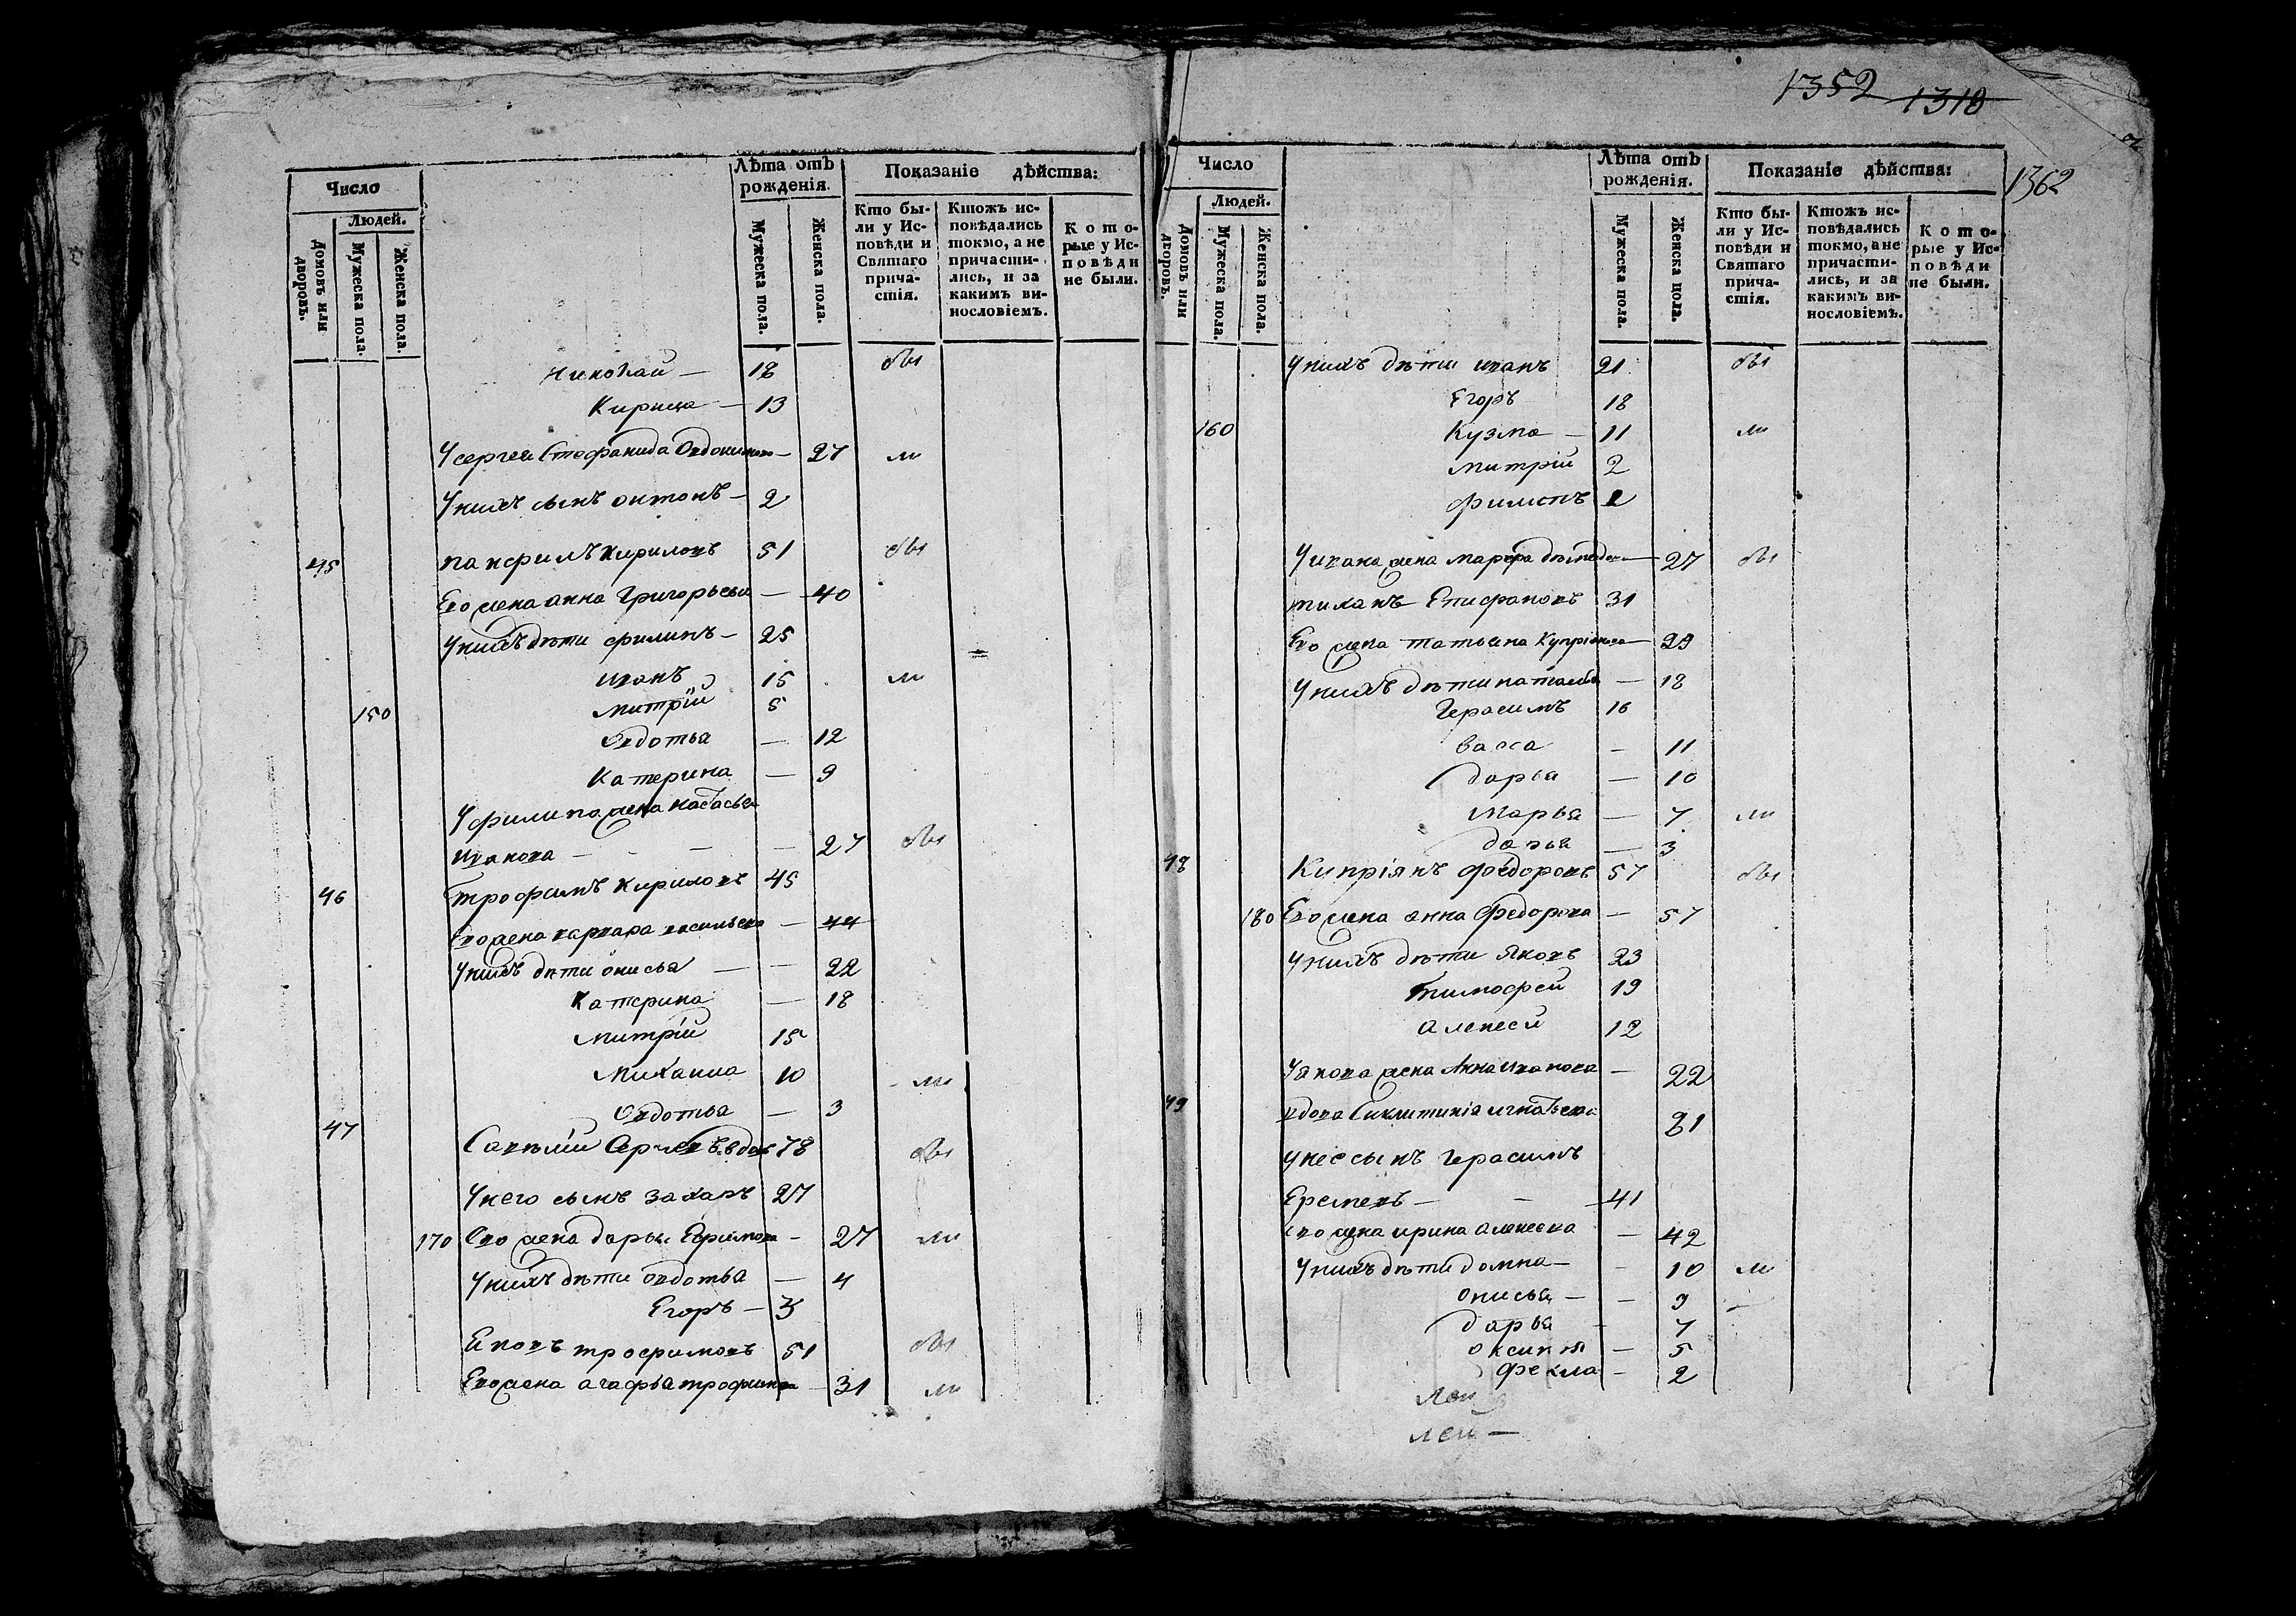 1352 1310
1362
Число
Людей.
Домовъ или дворовъ.
Мужеска пола.
Женска пола.
Лѣта отъ рожденія.
Мужеска пола.
Женска пола.
Показаніе дѣйства:
Кто бы-
ли у Ис-
повѣди и
Святаго
прича-
стія.
Ктожъ ис-
повѣдались
токмо, а не
причасти-
лись, и за
какимъ ви-
нословіемъ.
Кото-
рые у Ис-
повѣди
не были.
Николай — 18 обы
Кирила — 13
У сергея Стефанида Овдокимова — 27 ми
У нихъ сынъ онтонъ — 2
45 панфилъ кириловъ 51 обы
Ево жена анна Григорьева — 40
У нихъ дѣти филипъ — 25
иванъ 15 ми
150 митрій 5
Овдотья — 12
Катерина — 9
У филипа жена настасья
иванова — — — 27 обы
46 трофимъ кириловъ 45
Ево жена варвара васильева — 44
У нихъ дѣти онисья — — 22
Катерина — 18
митрій 15
михаила 10 ми
Овдотья — 3
47 78 обы
У него сынъ захаръ 27
170 Ево жена дарья — 27 ми
У нихъ дѣти овдотья — 4
Егоръ — 3
трофимовъ 51 обы
Ево жена агафья трофимова — 31 ми
Число
Людей.
Домовъ или дворовъ.
Мужеска пола.
Женска пола.
Лѣта отъ рожденія.
Мужеска пола.
Женска пола.
Показаніе дѣйства:
Кто бы-
ли у Ис-
повѣди и
Святаго
прича-
стія.
Ктожъ ис-
повѣдались
токмо, а не
причасти-
лись, и за
какимъ ви-
нословіемъ.
Кото-
рые у Ис-
повѣди
не были.
У нихъ дѣти иванъ 21 обы
Егоръ 18
160 Кузма — 11 ми
митрій 2
филипъ
У ивана жена марфа — 27 обы
тиханъ Епифановъ 31
Ево жена татьяна Купріянова — 29
У нихъ дѣти наталья — 18
Герасимъ 16
васса — 11
дарья — 10
марья — 7 ми
дарья — 3
48 Кипріянъ Федоровъ 57 обы
180 Ево жена анна Федорова — 57
У нихъ дѣти Яковъ 23
тимофей 19
алексей 12
У якова жена Анна иванова — 22
49 вдова игнатьева 81
У нее сынъ Герасимъ
Еремеевъ — — 41
Ево жена ирина алексева — 42
У нихъ дѣти домна — — 10 ми
онисья — — 9
дарья — 7
оксинья — 5
Фекла — 2
лей —